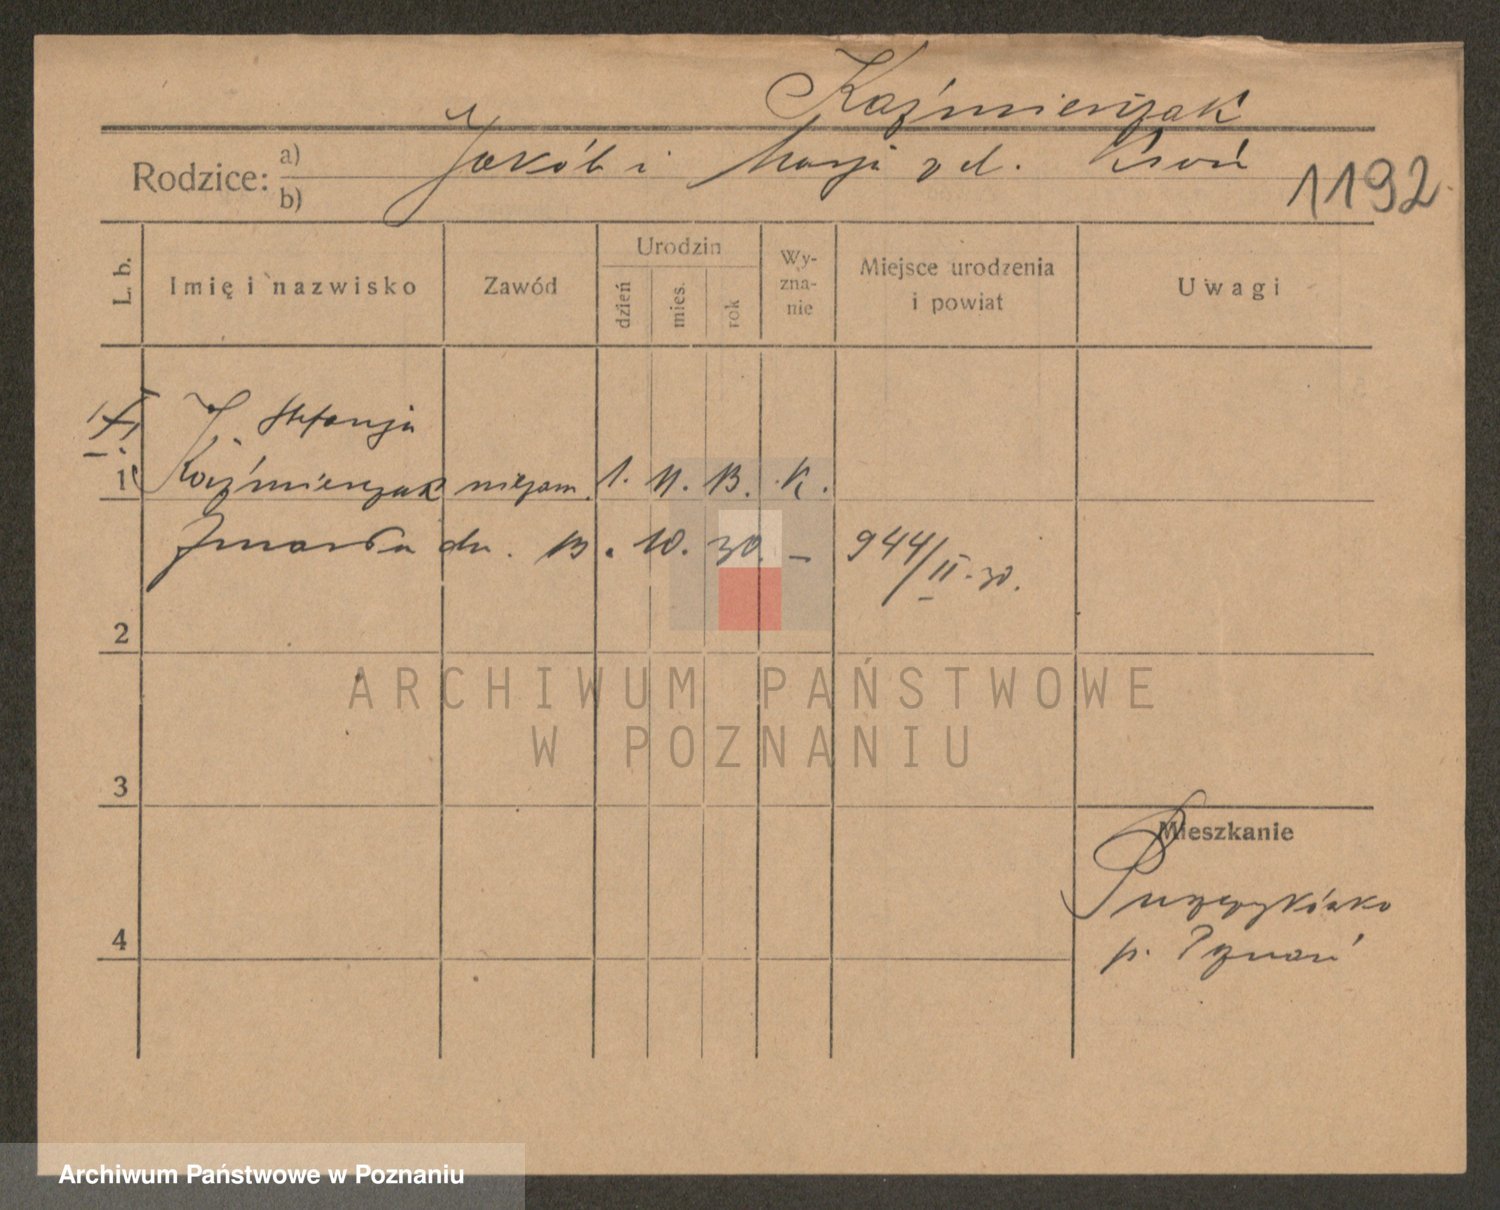 Kaźmierczak
Rodzice: a) b) Jakób i Marja z d. Kroń
1192
L. b. Imię i nazwisko Zawód Urodzin dzień mies. rok Wy- zna- nie Miejsce urodzenia i powiat Uwagi
Stefanja
1 Kaźmierczak niezam. 1. 11. 13. K.
Zmarła dn. 13. 10. 30. – 944/II.30.
2
ARCHIWUM PAŃSTWOWE
W POZNANIU
3
Mieszkanie
Puszczykówko
4
p. Poznań
Archiwum Państwowe w Poznaniu